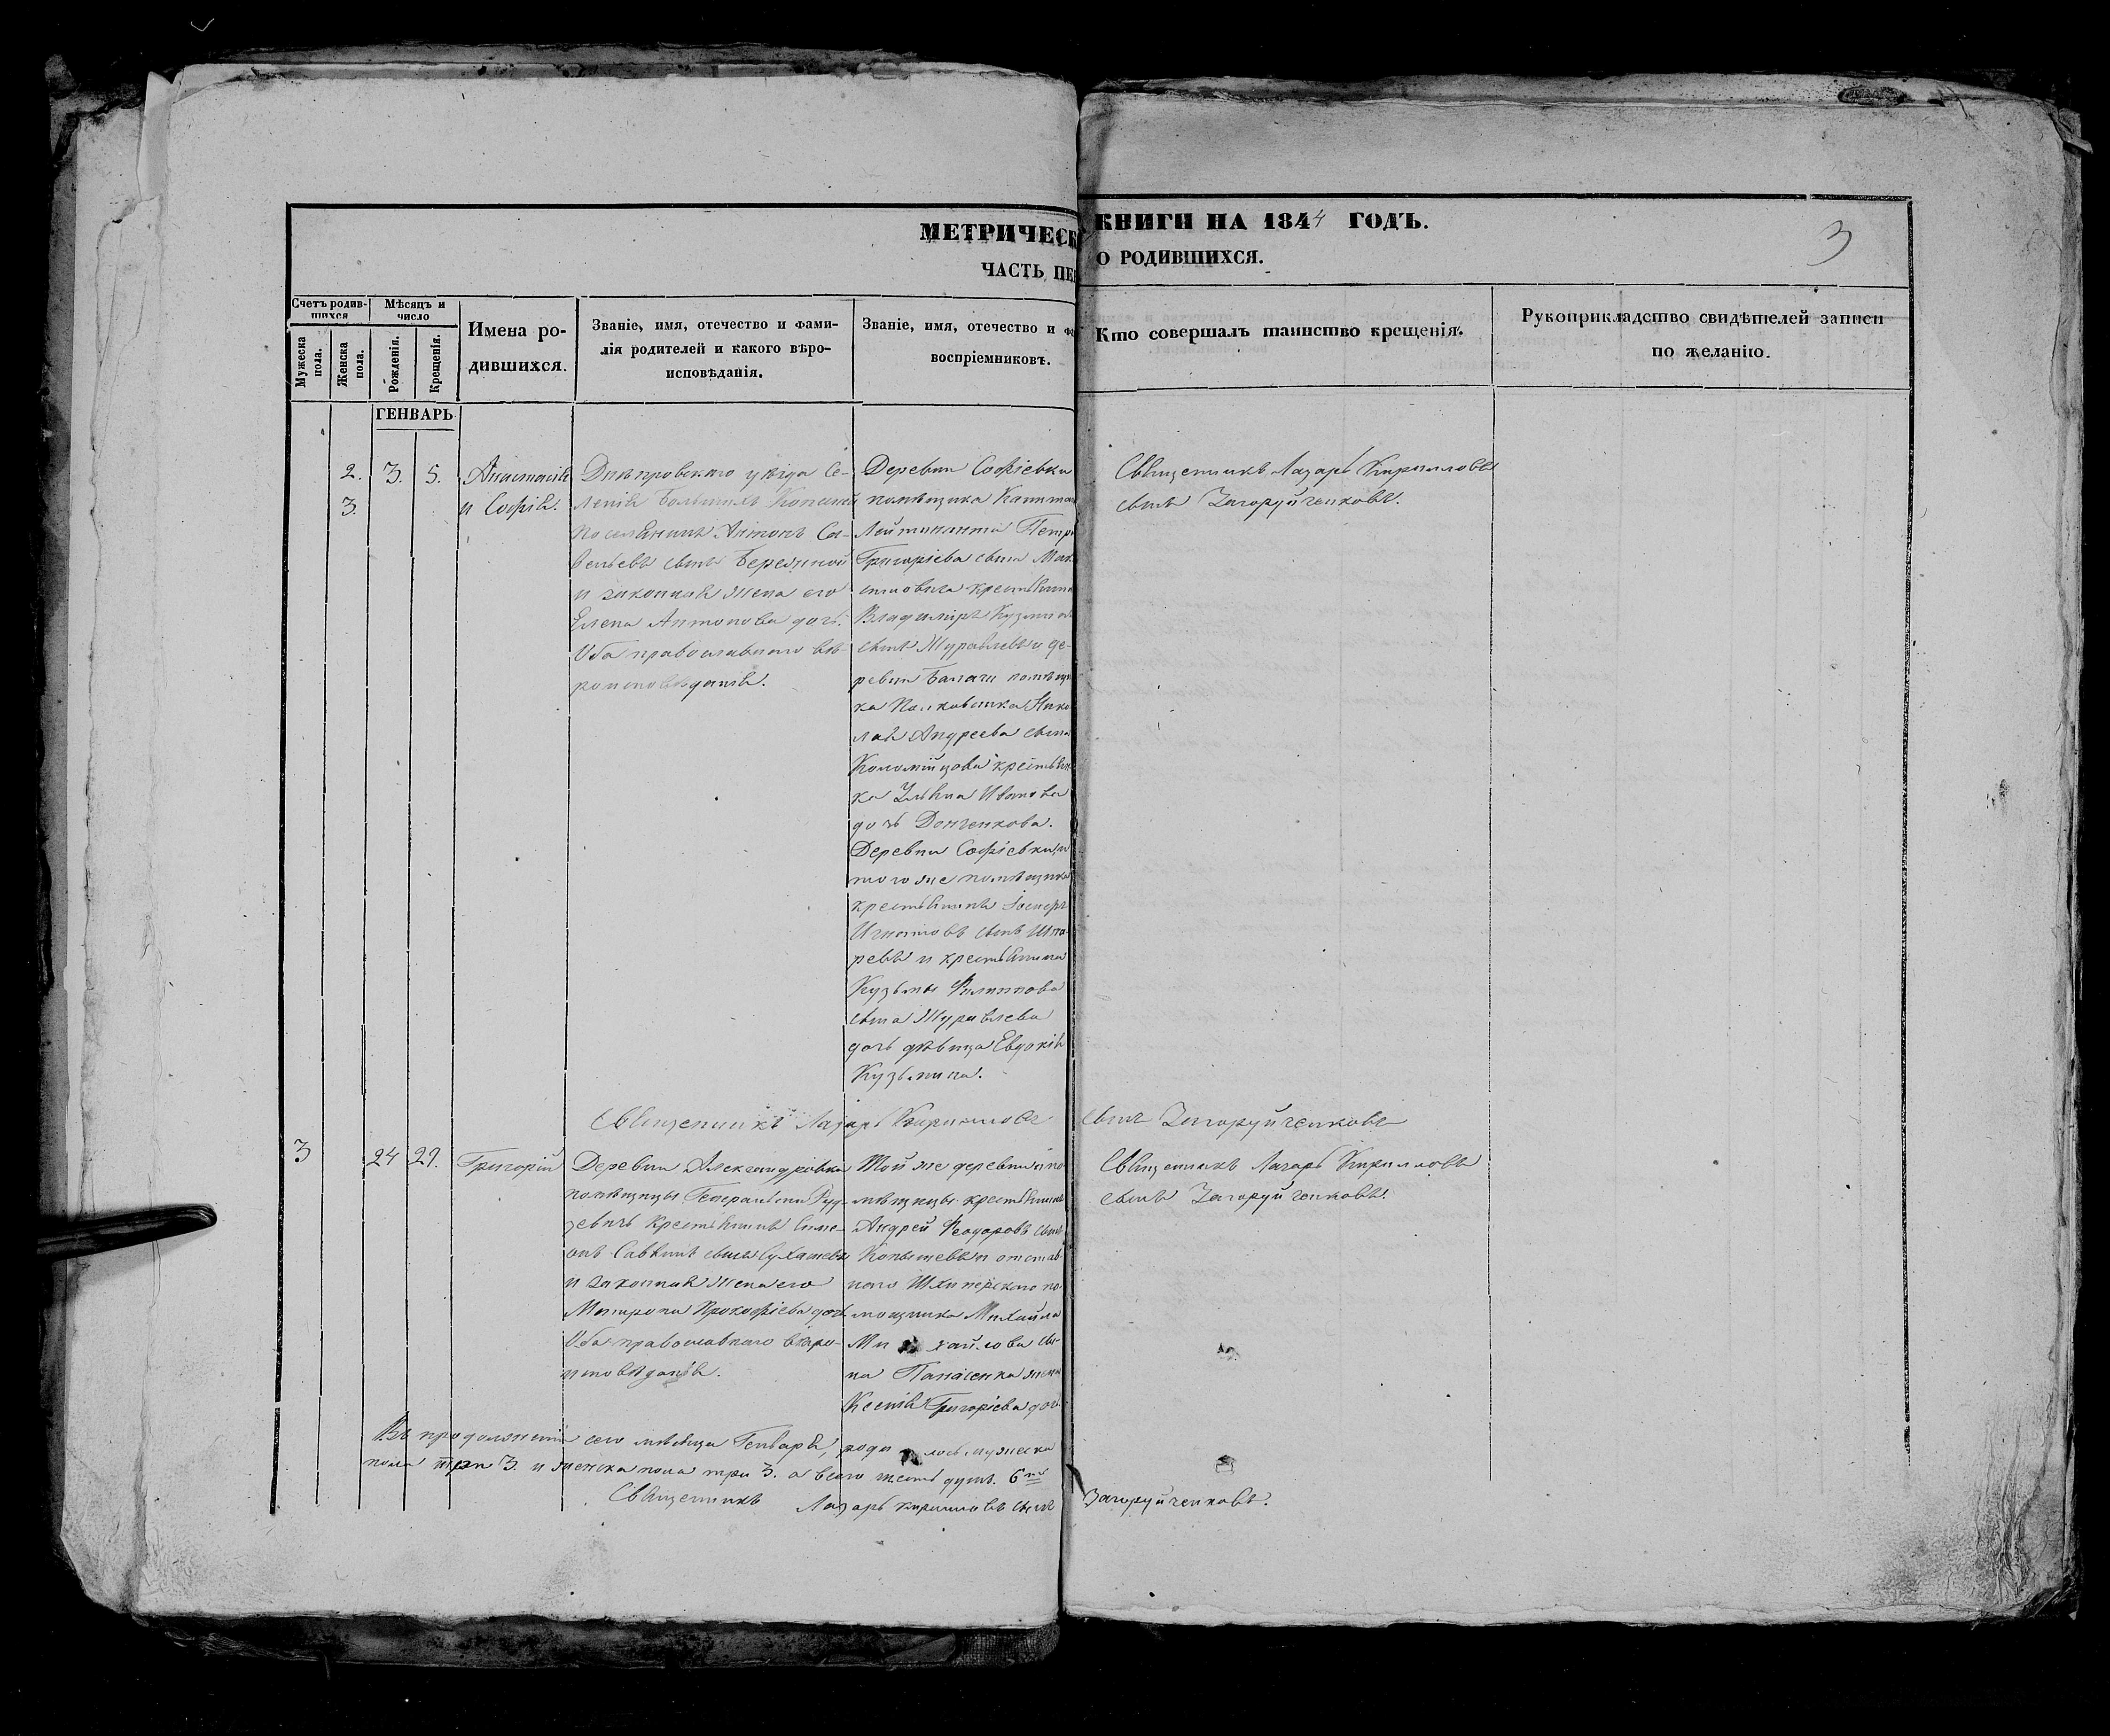 МЕТРИЧЕСК КНИГИ НА 1844 ГОДЪ.
3
ЧАСТЬ ПЕР О РОДИВШИХСЯ.
Счетъ родив-
шихся
Мѣсяцъ и
число
Мужеска пола.
Женска пола.
Рожденія.
Крещенія.
Имена ро-
дившихся.
Званіе, имя, отечество и фами-
лія родителей и какого вѣро-
исповѣданія.
Званіе, имя, отечество и фа
воспріемниковъ.
Кто совершалъ таинство крещенія.
Рукоприкладство свидѣтелей записи
по желанію.
ГЕНВАРЬ
2. 3. 5.
3.
Анастасія
и Софія.
Днѣпровскаго уѣзда Се-
ленія Большихъ Копаней
поселянинъ Антонъ Са-
вельевъ сынъ Бережной
и законная жена его
Елена Антонова дочь.
Оба православнаго вѣ-
роисповѣданія.
Деревни Софіевки
помѣщика Капитан
Лейтенанта Петра
Григоріева сына Мак
симовича крестьянин
Владиміръ Кузминъ
сынъ Журавлевъ и де-
ревни Балачи помѣщи
ка Полковника Нико
лая Андреева сына
Коломійцова крестьян
ка Ульяна Иванова
дочь Донченкова.
Деревни Софіевки, и
того же помѣщика
крестьянинъ
Игнатовъ сынъ Шпа-
ревъ и крестьянина
Кузьмы Филиппова
сына Журавлева
дочь дѣвица Евдокія
Кузьмина.
Священникъ Лазарь Кирилловъ
сынъ Загоруйченковъ.
Священникъ Лазарь Кирилловъ сынъ Загоруйченковъ
3 24 29. Григорій
Деревни Александровки
помѣщицы Генеральши Руд-
зевичъ крестьянинъ Симе-
онъ Саввинъ сынъ Сухашевъ
и законная жена его
Матрона Прокофіева дочь
Оба православнаго вѣро-
исповѣданія.
Той же деревни и по-
мѣщицы крестьянинъ
Андрей Феодоровъ сынъ
Копытевъ и отстав-
наго Шхиперскаго по-
мощника Михаила
Михайлова сы-
на Панасенка жена
Ксенія Григоріева дочь
Священникъ Лазарь Кирилловъ
сынъ Загоруйченковъ.
Въ продолженіи сего мѣсяца Генваря, родилось мужеска
пола три 3. и женска пола три 3. а всего шесть душъ. 6ть
Священникъ Лазарь Кирилловъ сынъ Загоруйченковъ.